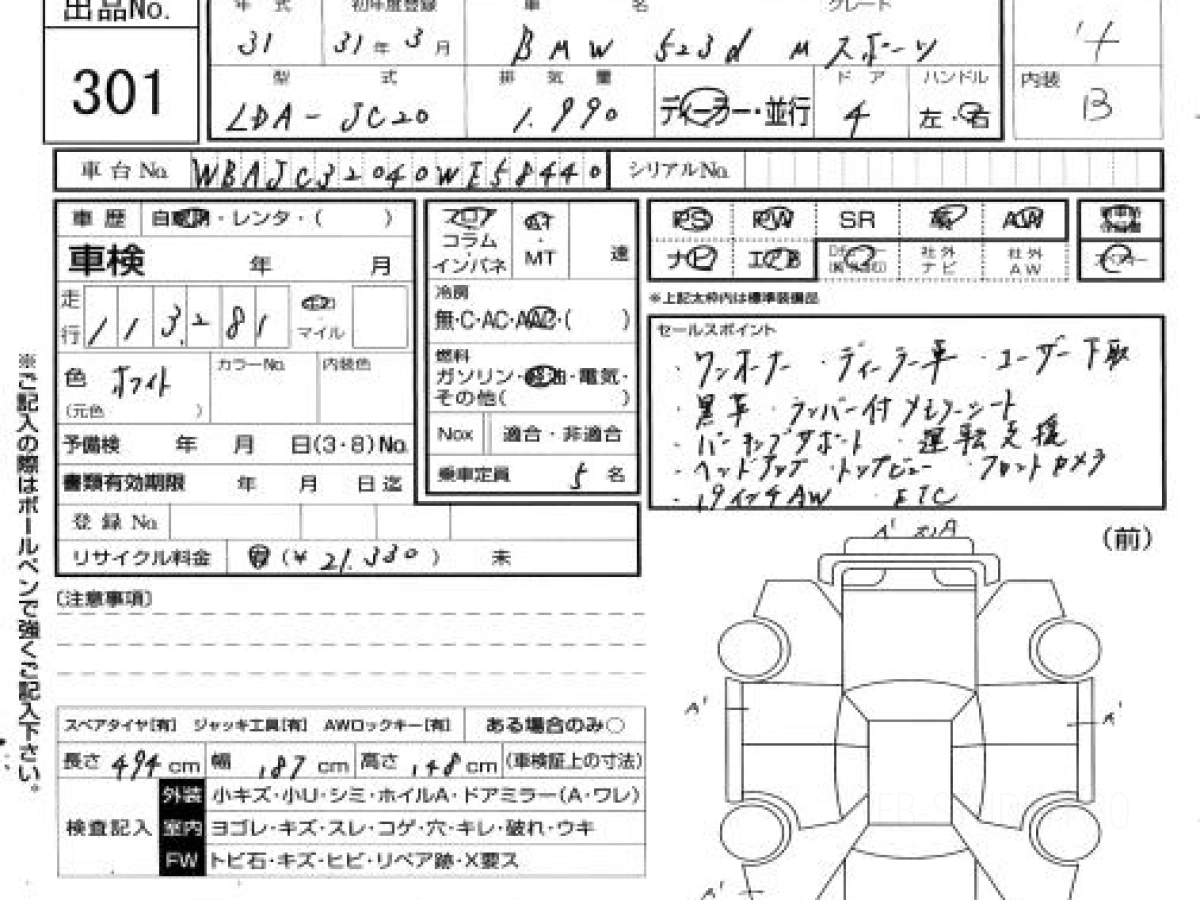 出品No. 年式 初年度登録 車名 グレード
31 31年 3月 BMW 523d Mスポーツ 4
301 型式 排気量 ドア ハンドル 内装
LDA-JC20 1.990 ディーラー・並行 4 左・右 B
車台No. WBAJC32040WE58440 シリアルNo.
車歴 自家用・レンタ・( ) フロア AT PS PW SR 革 AW
コラム
インパネ MT 速 ナビ エアB 社外ナビ 社外AW
車検 年 月
※上記太枠内は標準装備品
走行 113,281 キロ マイル 冷房
無・C・AC・AAC・( )
セールスポイント
・ワンオーナー ・ディーラー車 ・ユーザー下取
色 ホワイト カラーNo. 内装色 燃料
(元色 ) ガソリン・軽油・電気・
その他( )
・黒革 ・ランバー付メモリーシート
・パーキングサポート ・運転支援
予備検 年 月 日(3・8)No. Nox 適合・非適合
・ヘッドアップ ・トップビュー ・フロントカメラ
書類有効期限 年 月 日迄 乗車定員 5名
・19インチAW ・ETC
登録No.
リサイクル料金 有(¥21.330) 未
(前)
(注意事項)
※ご記入の際はボールペンで強くご記入下さい。
A'
A'
A'
スペアタイヤ[有] ジャッキ工具[有] AWロックキー[有] ある場合のみ○
長さ 494cm 幅 187cm 高さ 148cm (車検証上の寸法)
検査記入 外装 小キズ・小U・シミ・ホイルA・ドアミラー(A・ワレ)
室内 ヨゴレ・キズ・スレ・コゲ・穴・キレ・破れ・ウキ
FW トビ石・キズ・ヒビ・リペア跡・X要ス
A'